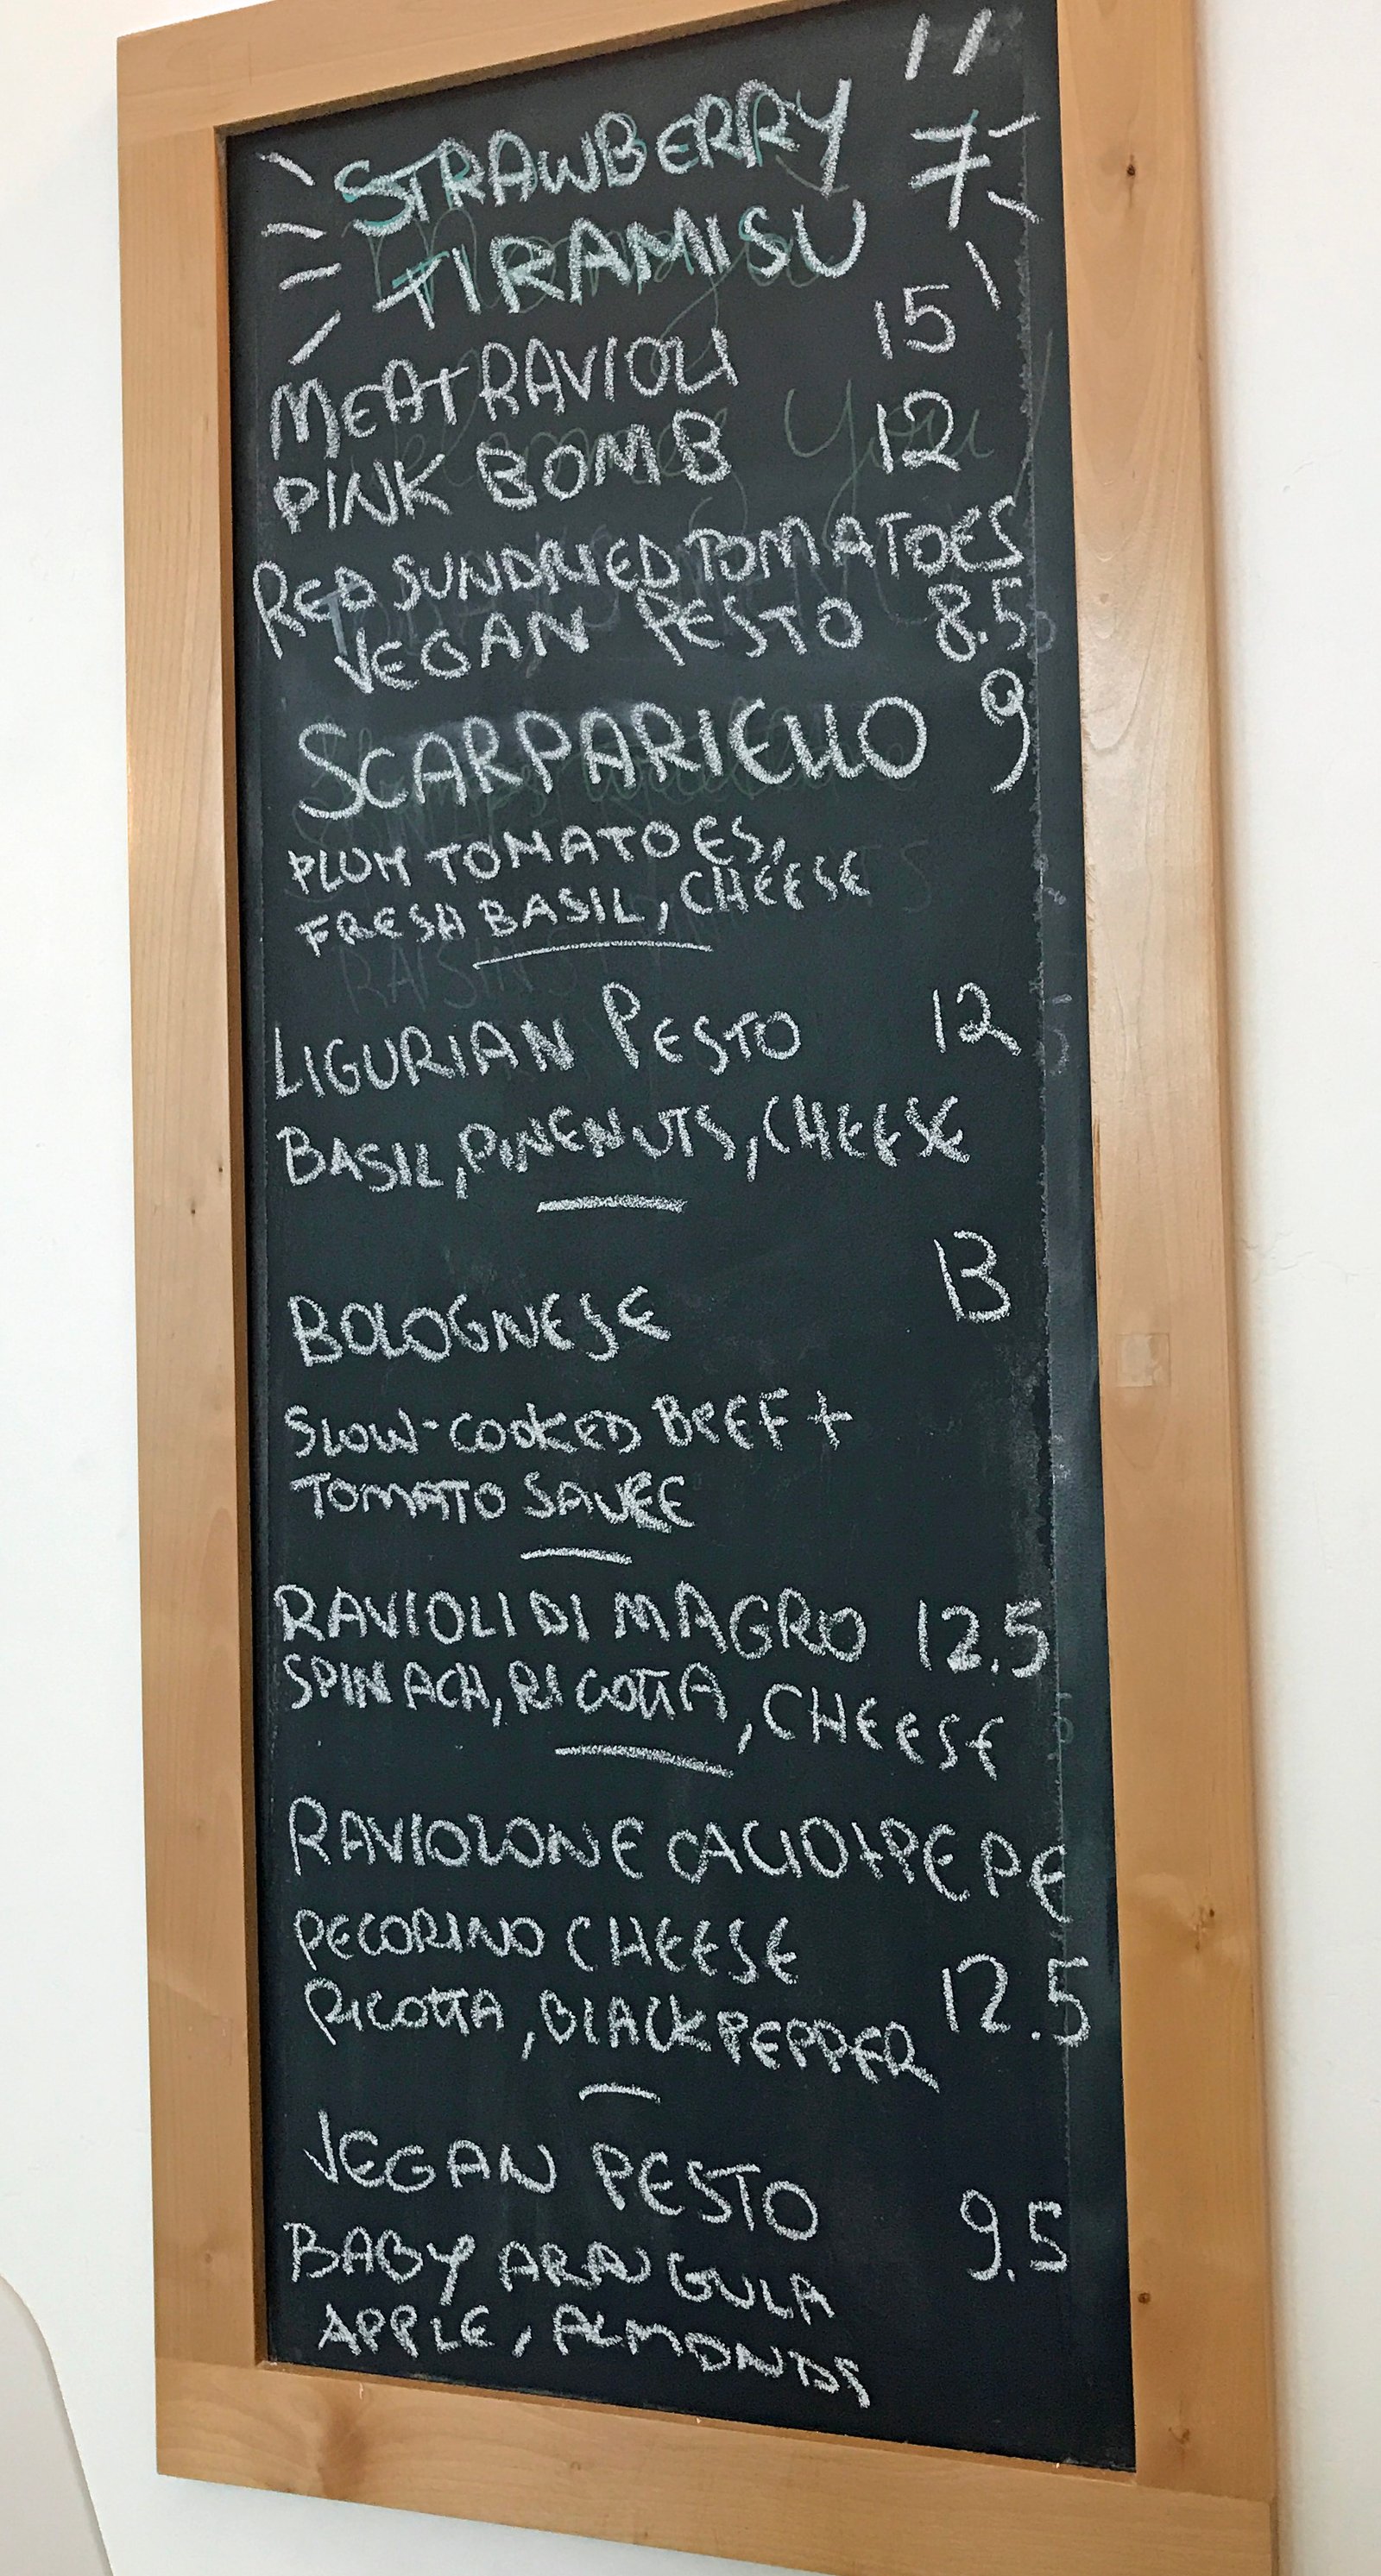 STRAWBERRY 7
TIRAMISU
MEAT RAVIOLI 15
PINK BOMB 12
RED SUNDRIED TOMATOES
VEGAN PESTO 8.5
SCARPARIELLO 9
PLUM TOMATOES,
FRESH BASIL, CHEESE
LIGURIAN PESTO 12
BASIL, PINENUTS, CHEESE
BOLOGNESE 13
SLOW-COOKED BEEF +
TOMATO SAUCE
RAVIOLI DI MAGRO 12.5
SPINACH, RICOTTA, CHEESE
RAVIOLONE CACIO+PEPE
PECORINO CHEESE
RICOTTA, BLACK PEPPER 12.5
VEGAN PESTO
BABY ARAUGULA 9.5
APPLE, ALMONDS